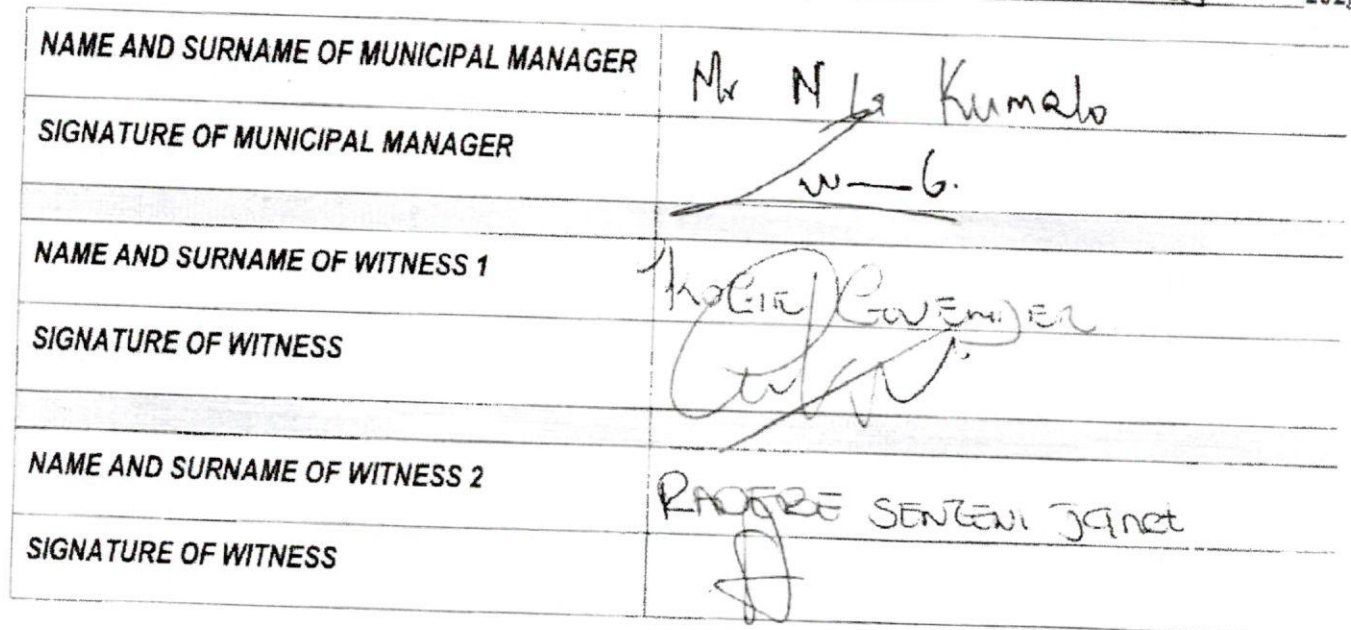 NAME AND SURNAME OF MUNICIPAL MANAGER Mr N Kumalo
SIGNATURE OF MUNICIPAL MANAGER
NAME AND SURNAME OF WITNESS 1 KOGIE GOVENDER
SIGNATURE OF WITNESS
NAME AND SURNAME OF WITNESS 2 RADEBE SENZENI Janet
SIGNATURE OF WITNESS